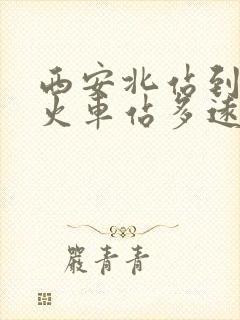 西安北佔到
火車佔多遠
嚴青青